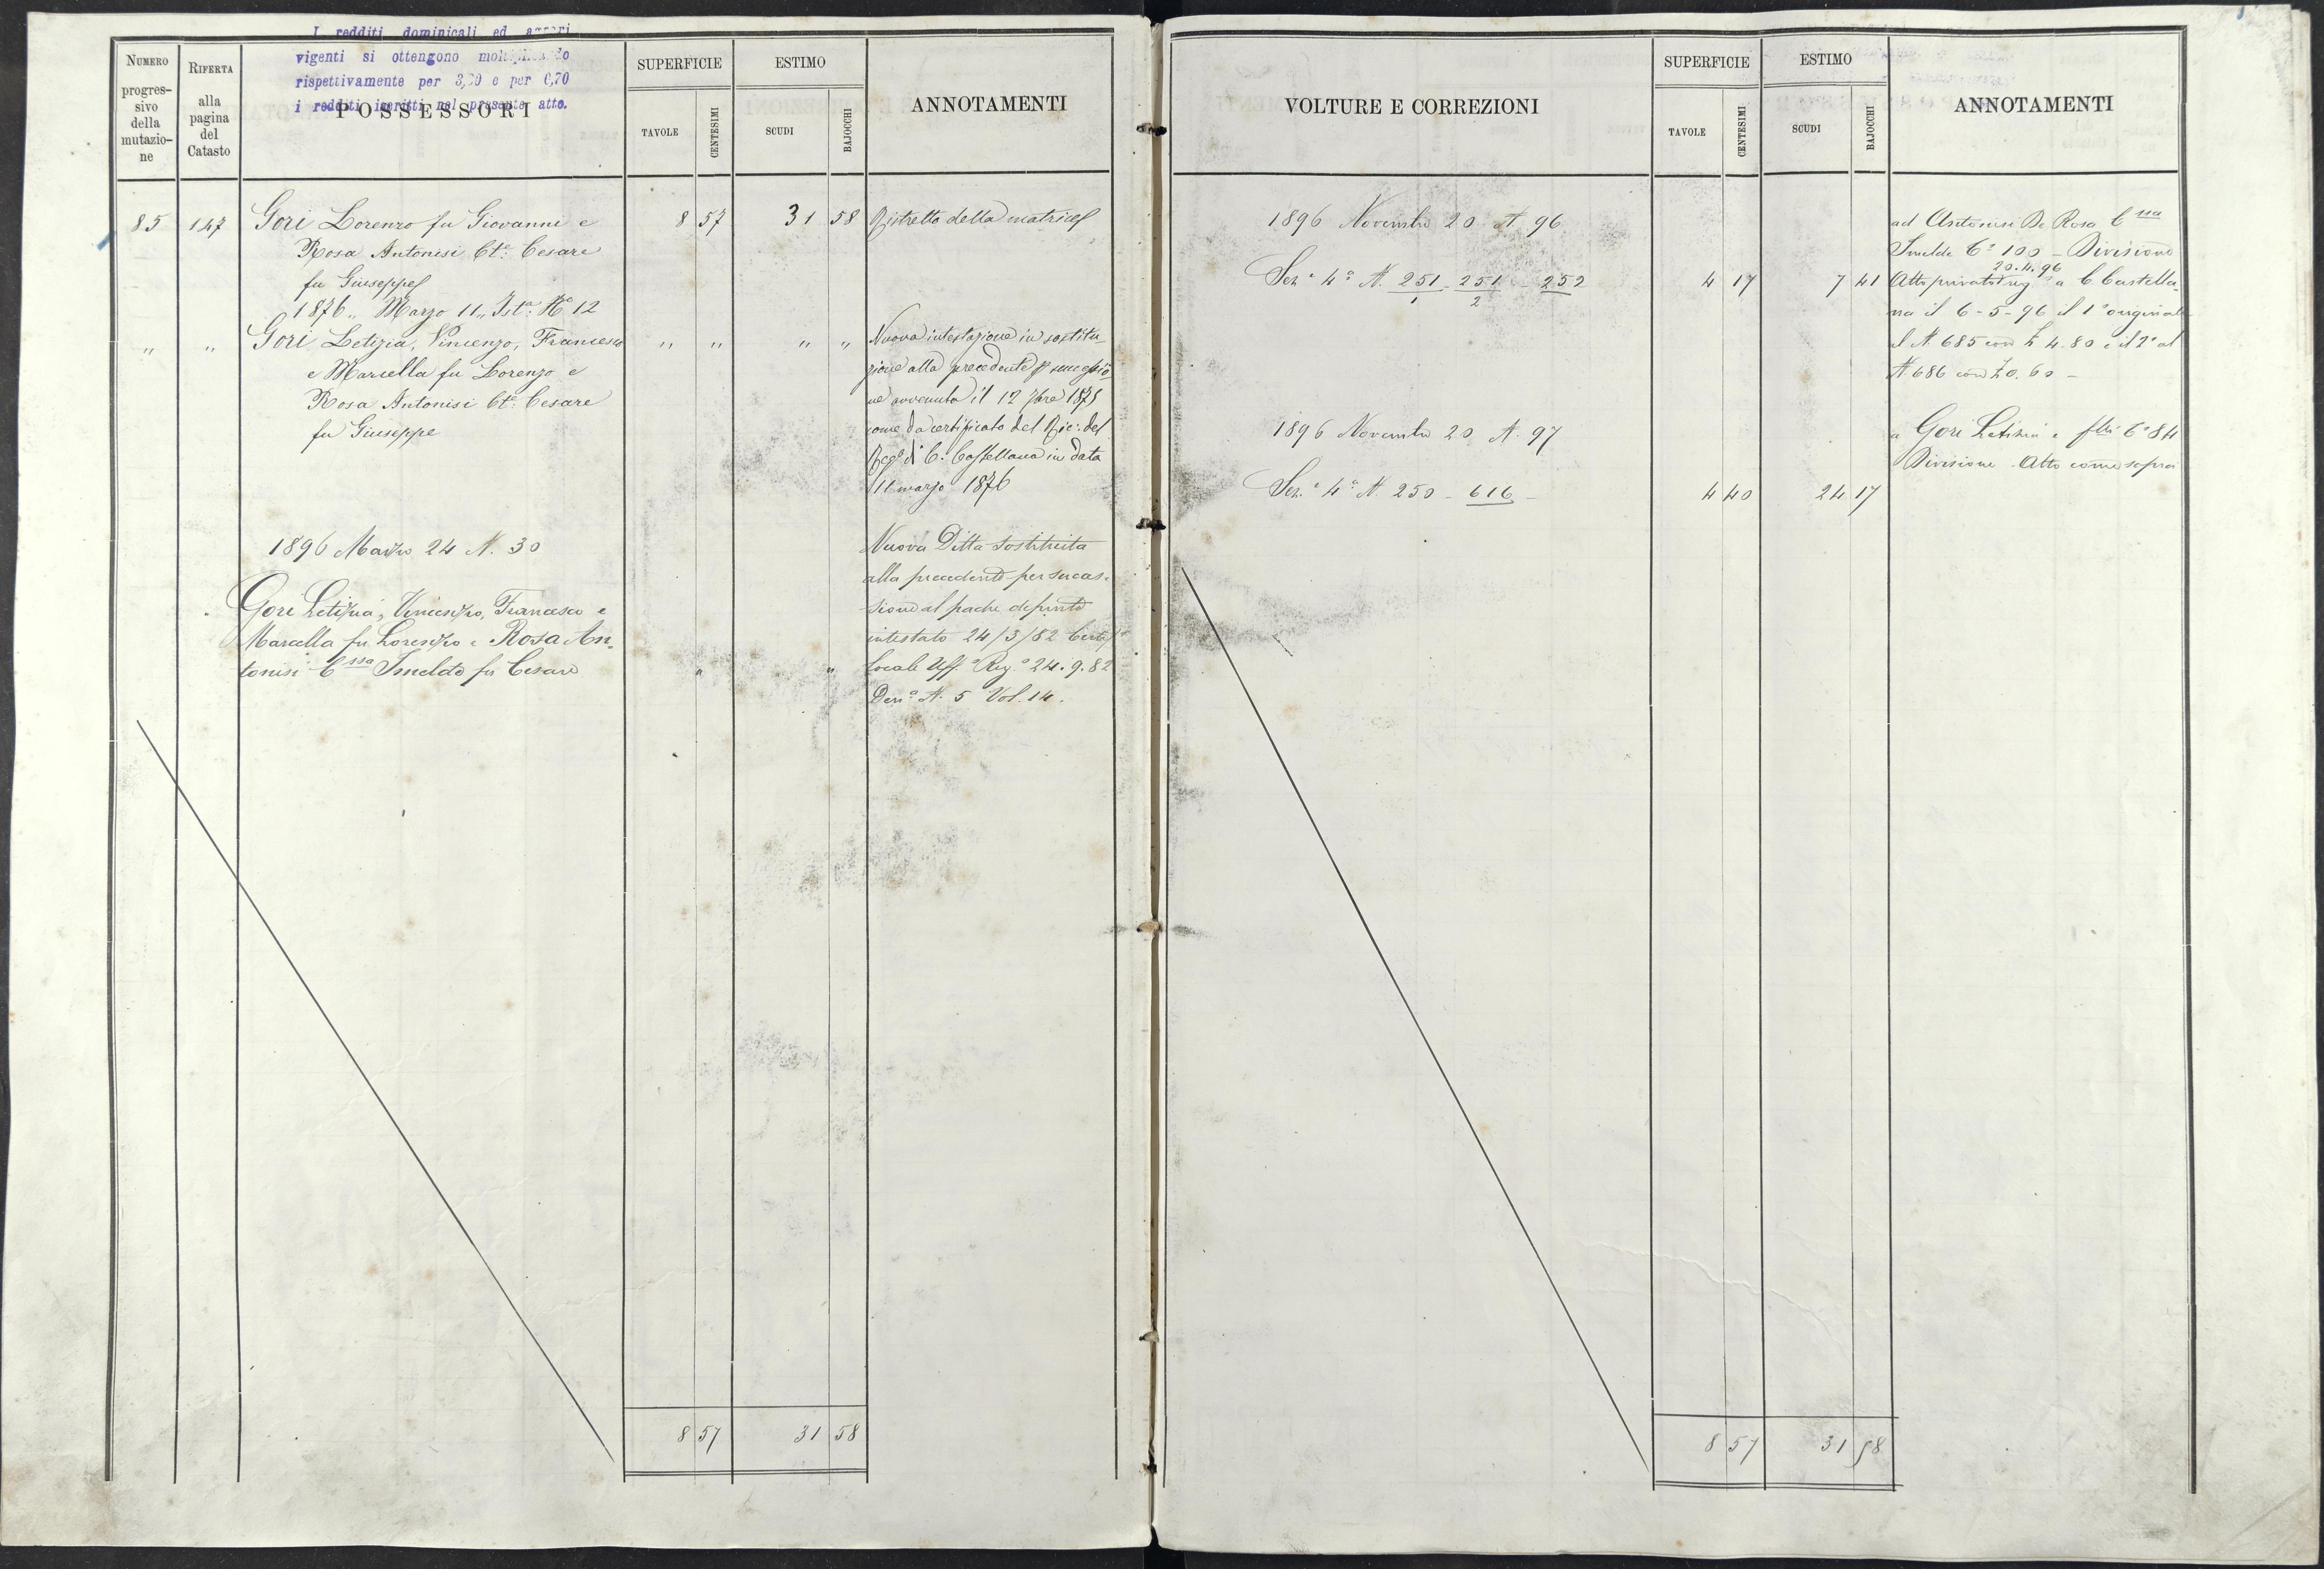 I redditi dominicali ed agrari
vigenti si ottengono moltiplicando
rispettivamente per 3,20 e per 0,70
i redditi iscritti nel presente atto.
NUMERO
progres-
sivo
della
mutazio-
ne
RIFERTA
alla
pagina
del
Catasto
POSSESSORI
SUPERFICIE
TAVOLE
CENTESIMI
ESTIMO
SCUDI
BAJOCCHI
ANNOTAMENTI
85 147 Gori Lorenzo fu Giovanni e 8 57 31 58 Ristretto della matrice
Rosa Antonisi Cte: Cesare
fu Giuseppe
1876 „ Marzo 11 „ Ista: No 12
„ „ Gori Letizia, Vincenzo, Francesco „ „ „ „ Nuova intestazione in sostitu
e Marcella fu Lorenzo e zione alla precedente p successio
Rosa Antonisi Cte: Cesare ne avvenuta il 12 7bre 1875
fu Giuseppe come da certificato del Ric: del
Rego di C. Castellana in data
11 marzo 1876
1896 Marzo 24 N. 30 Nuova Ditta sostituita
alla precedente per succes-
Gori Letizia, Vincenzo, Francesco e sione al padre defunto
Marcella fu Lorenzo e Rosa An- intestato 24/3/82
tonisi Cssa Imelde fu Cesare „ „ locale Uff.o Reg.o 24.9.82
Den.a N. 5 Vol. 14.
8 57 31 58
VOLTURE E CORREZIONI
SUPERFICIE
TAVOLE
CENTESIMI
ESTIMO
SCUDI
BAJOCCHI
ANNOTAMENTI
1896 Novembre 20 N. 96 ad Antonisi De Rosa Cssa
Imelde Ca 100 - Divisione
20.4.96
Sez.e 4a N. 251/1 - 251/2 - 252 4 17 7 41 Atto privato reg.o a C Castella-
na il 6-5-96 il 1o originale
al N. 685 con £ 4.80 e il 2o al
N. 686 con £ 0.60 -
1896 Novembre 20 N. 97 a Gori Letizia e flli Ca 84
Divisione - Atto come sopra
Sez.e 4a N. 250 - 616 - 4 40 24 17
8 57 31 58